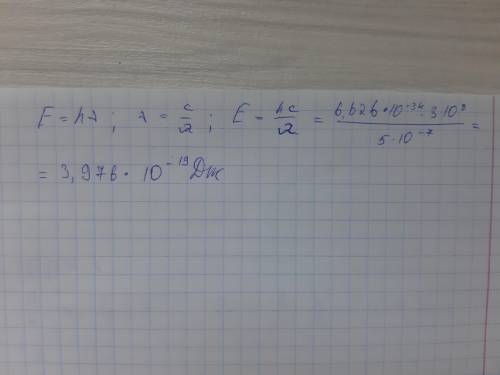 E = hν ; ν = c/λ ; E = hc/λ = 6,626 · 10⁻³⁴ · 3 · 10⁸ / 5 · 10⁻⁷ =
= 3,976 · 10⁻¹⁹ Дж